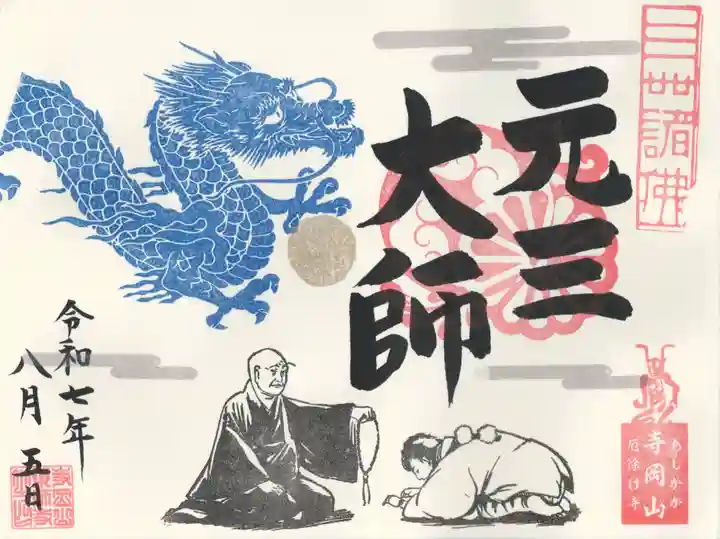 三世諸佛
元三
大師
あしかが
寺岡山
厄除け寺
令和七年
八月五日